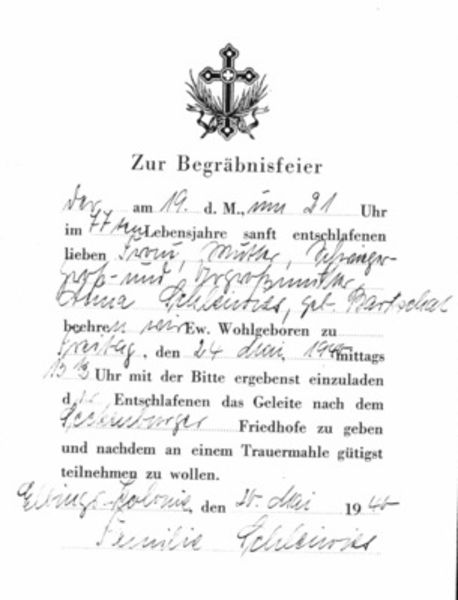 Zur Begräbnisfeier
der am 19. d. M., um 21 Uhr
im 77 ten Lebensjahre sanft entschlafenen
lieben Frau, Mutter, Schwieger-
Groß- und Urgroßmutter
Anna geb.
beehren wir Ew. Wohlgeboren zu
Freitag, den 24 Mai 1940 mittags
Uhr mit der Bitte ergebenst einzuladen
d er Entschlafenen das Geleite nach dem
Friedhofe zu geben
und nachdem an einem Trauermahle gütigst
teilnehmen zu wollen.
Elbings-Kolonie, den 20. Mai 1940
Familie